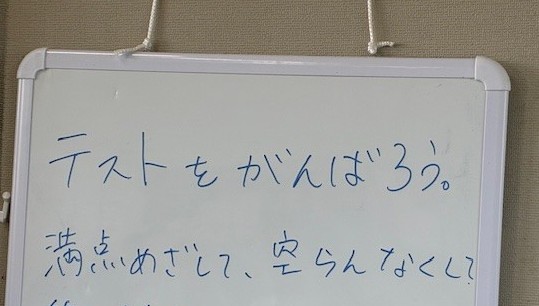 テストをがんばろう。
満点めざして、空らんなくして